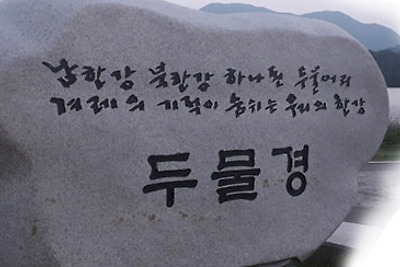 남한강 북한강 하나된 두물머리
겨레의 기적이 숨쉬는 우리의 한강
두물경